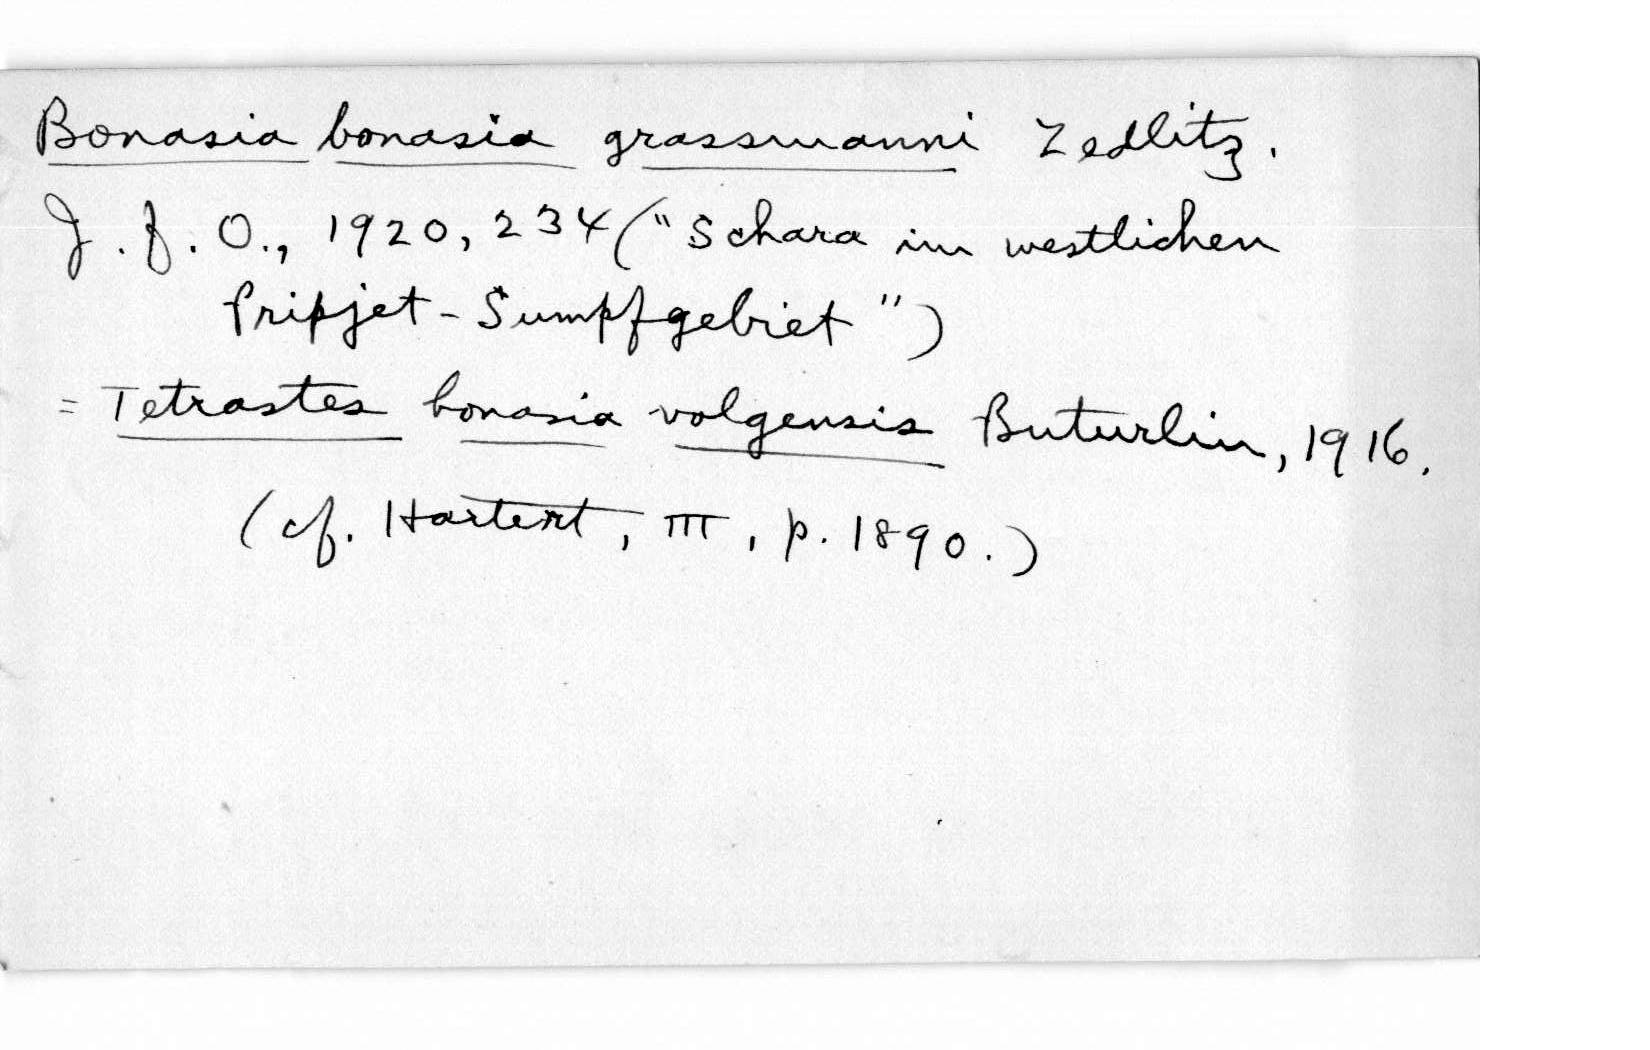 Bonasia bonasia grassmanni Zedlitz.
J. f. O., 1920, 234 ("Schara im westlichen
Pripjet-Sumpfgebiet")
= Tetrastes bonasia volgensis Buturlin, 1916.
(cf. Hartert, III, p. 1890.)